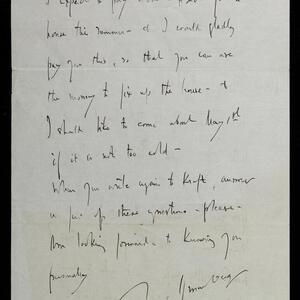 I expect to pay
house this summer - & I could gladly
pay you this, so that you can use
the money to fix up the house - &
I should like to come about May 1st
if it is not too cold -
When you write again to Kraft, answer
these questions - please -
Am looking forward to knowing you
personally